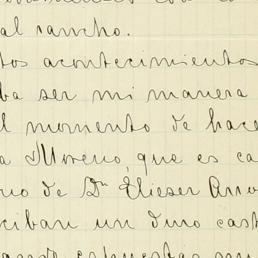 al rancho.
tos acontecimientos
ba ser mi manera
l momento de hace
a Moreno, que es ca
rio de Dn Elieser Arro
ciban un duro cast